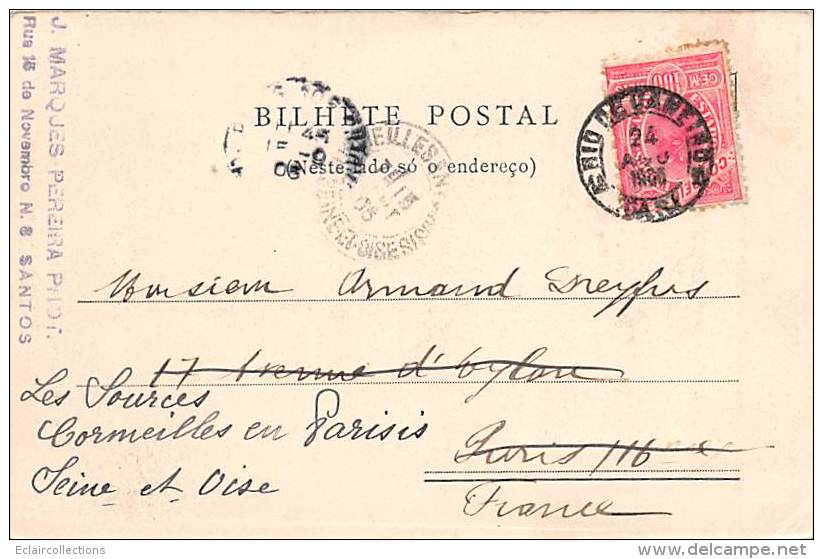 J. MARQUES PEREIRA PHOT.
Rua 15 de Novembro N. 8 SANTOS
BILHETE POSTAL
(Neste lado só o endereço)
CEM 100
RIO DE JANEIRO
24
Monsieur Armand Dreyfus
17 Avenue d'Eylau
Paris
France
Les Sources
Cormeilles en Parisis
Seine et Oise
Eclaircollections
www.delcampe.net